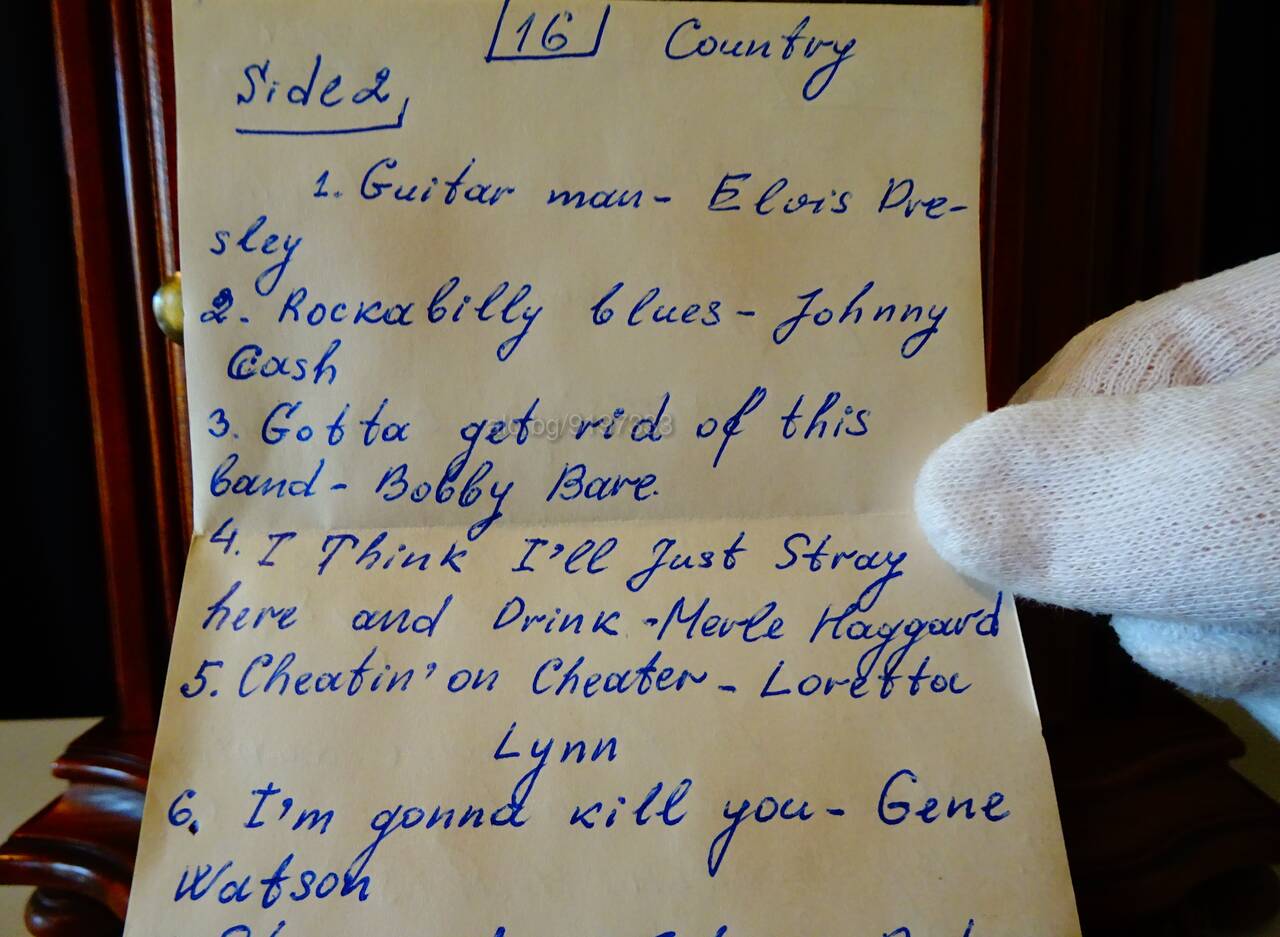 16 Country
Side 2,
1. Guitar man - Elvis Pre-
sley
2. Rockabilly blues - Johnny
Cash
3. Gotta get rid of this
band - Bobby Bare.
4. I Think I'll Just Stray
here and Drink - Merle Haggard
5. Cheatin' on Cheater - Loretta
Lynn
6. I'm gonna kill you - Gene
Watson